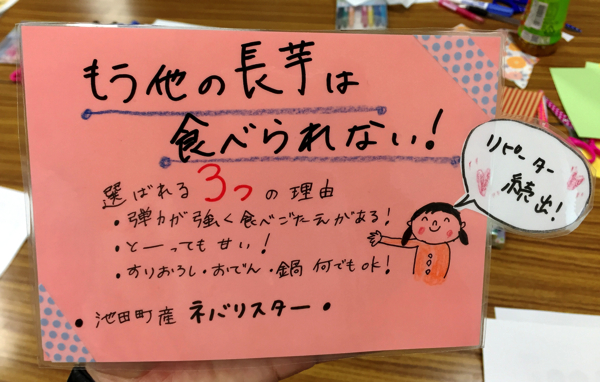 もう他の長芋は
食べられない!
リピーター
続出!
選ばれる3つの理由
・弾力が強く食べごたえがある!
・とーっても甘い!
・すりおろし・おでん・鍋 何でもOK!
・池田町産 ネバリスター・